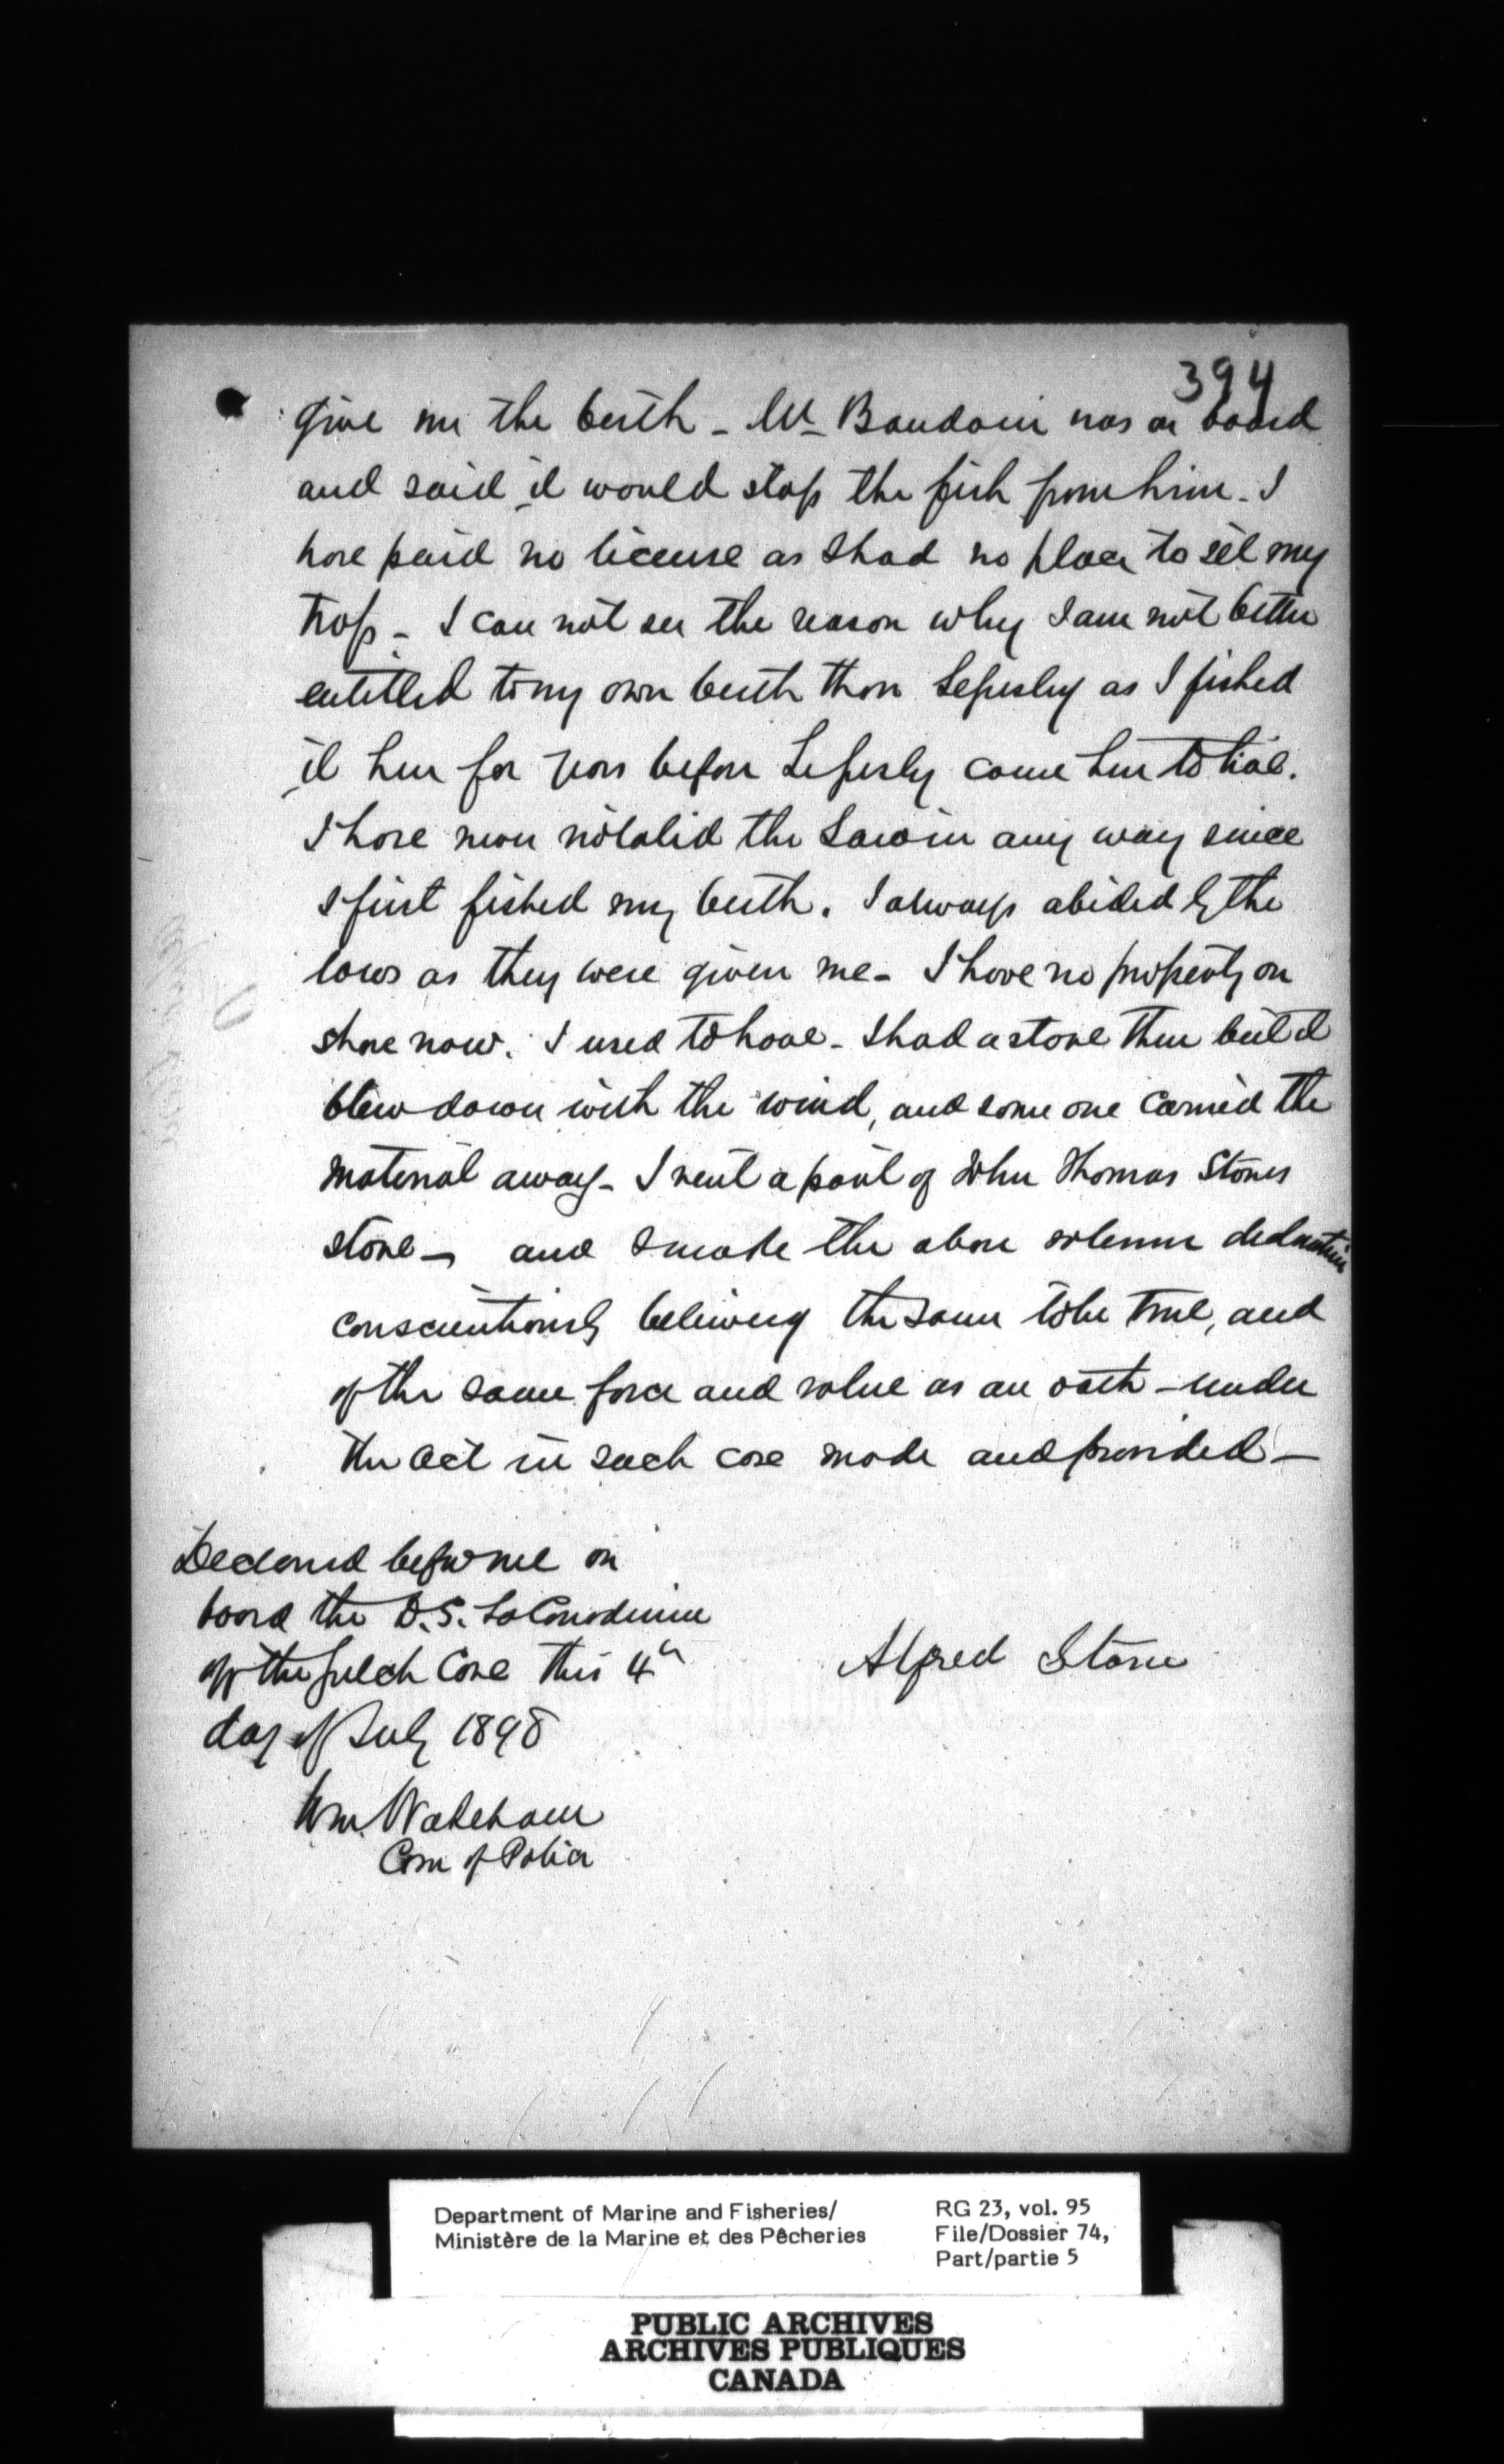 394
give me the berth - Mr Baudoin was on board
and said it would stop the fish from him - I
have paid no license as I had no place to set my
trap - I can not see the reason why I am not better
entitled to my own berth than as I fished
it here for years before come here to
I have never violated the Law in any way since
I first fished my berth. I always abided by the
laws as they were given me - I have no property on
shore now. I used to have - I had a store there but it
blew down with the wind, and some one carried the
material away - I rent a part of John Thomas Stones
store - and I make the above solemn declaration
conscientiously believing the same to be true, and
of the same force and value as an oath - under
the act in such case made and provided -
Declared before me on
board the D.S. La Canadienne
off the Cove this 4th
day of July 1898
Alfred Stone
Wm. Wakeham
Com of Police
Department of Marine and Fisheries/
Ministère de la Marine et des Pêcheries
RG 23, vol. 95
File/Dossier 74,
Part/partie 5
PUBLIC ARCHIVES
ARCHIVES PUBLIQUES
CANADA